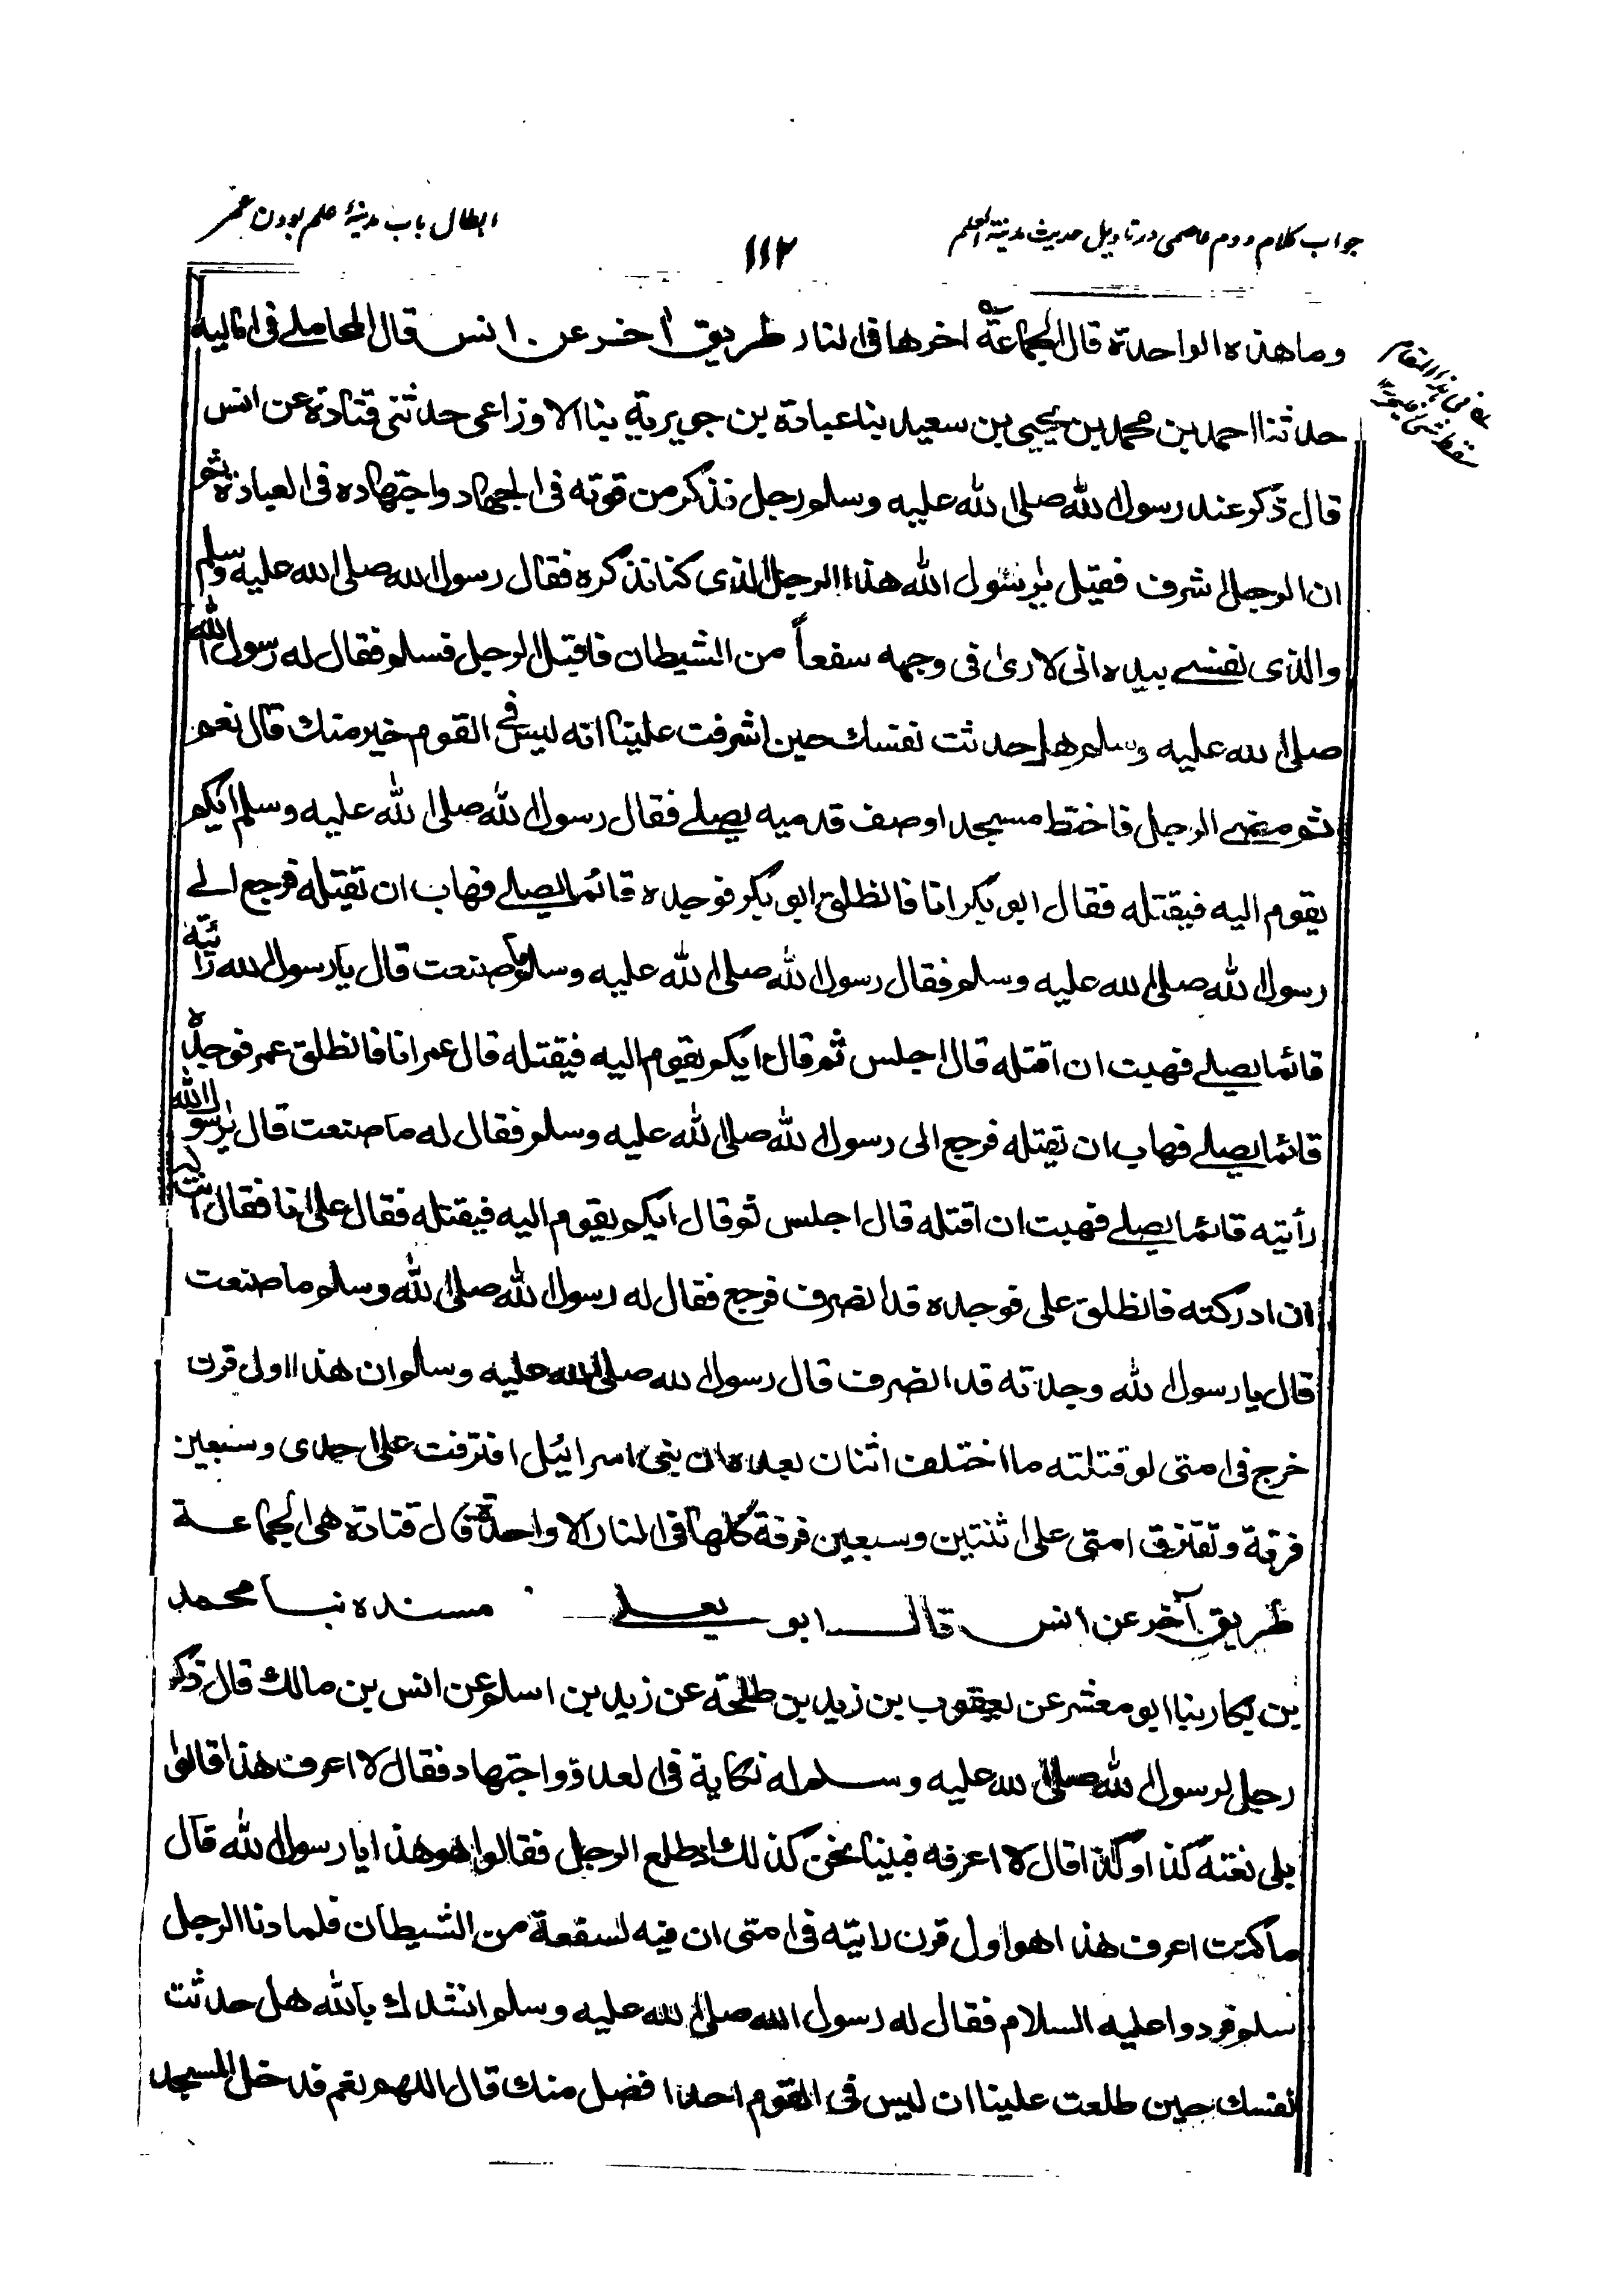 جواب كلام دوم عاصمی در تاویل حدیث مدینة العلم
١١٢
ابطال باب مدینهٔ علم بودن عمر
وما هذه الواحدة قال الجماعة اخرها فى النار طريق اخر عن انس قال المحاملے فى اماليه
سقط
حدثنا احمد بن محمد بن يحيى بن سعيد بنا عبادة بن جويرية بنا الاوزاعى حدثنى قتادة عن انس
قال ذكر عند رسول الله صلى الله عليه وسلم رجل نذكر من قوته فى الجهاد واجتهاده فى العبادة ثم
ان الرجل اشرف فقيل يٰرسول الله هذا الرجل الذى كنا نذكره فقال رسول الله صلى الله عليه وسلم
والذى نفسے بيده انى لارىٰ فى وجهه سفعاً من الشيطان فاقبل الرجل فسلم فقال له رسول الله
صلى الله عليه وسلم هل حدثت نفسك حين اشرفت علينا انه ليس فى القوم خير منك قال نعم
ثم مضے الرجل فاختط مسجدا وصف قدميه يصلے فقال رسول الله صلى الله عليه وسلم ايكم
يقوم اليه فيقتله فقال ابو بكر انا فانطلق ابو بكر فوجده قائما يصلے فهاب ان تقيتله فرجع الے
رسول الله صلى الله عليه وسلم فقال رسول الله صلى الله عليه وسلم ما صنعت قال يا رسول الله رأئيه
قائما يصلے فهبت ان اقتله قال اجلس ثم قال ايكم يقوم اليه فيقتله قال عمر انا فانطلق عمر فوجده
قائما يصلے فهاب ان يقتله فرجع الى رسول الله صلى الله عليه وسلم فقال له ما صنعت قال يٰرسول الله
رأيته قائما يصلے فهبت ان اقتله قال اجلس ثم قال ايكم يقوم اليه فيقتله فقال على انا فقال انت له
ان ادركته فانطلق على فوجده قد انصرف فرجع فقال له رسول الله صلى الله وسلم ما صنعت
قال يا رسول الله وجدته قد انصرف قال رسول الله صلى الله عليه وسلم ان هذا اولى قرن
خرج فى امتى لو قتلته ما اختلف اثنان بعده ان بنى اسرائيل افترقت على احدى وسبعين
فرقة وتفترق امتى على اثنتين وسبعين فرقة كلها فى النار الا واحدة قال قتادة هى الجماعة
طريق آخر عن انس قال ابو يعلے مسنده نبا محمد
بن بكار بنا ابو معشر عن يعقوب بن زيد بن طلحة عن زيد بن اسلم عن انس بن مالك قال ذكر
رجل لرسول الله صلى الله عليه وسلم له نكاية فى العدو واجتهاد فقال لا اعرف هذا قالوا
بلى نعته كذا وكذا قال لا اعرفه فبينا نحن كذلك اذ طلع الرجل فقالوا هو هذا يا رسول الله قال
ما كنت اعرف هذا هو اول قرن رايته فى امتى ان فيه لسفعة من الشيطان فلما دنا الرجل
سلم فردوا عليه السلام فقال له رسول الله صلى الله عليه وسلم انشدك بالله هل حدثت
نفسك حين طلعت علينا ان ليس فى القوم احدا افضل منك قال اللهم نعم فدخل المسجد